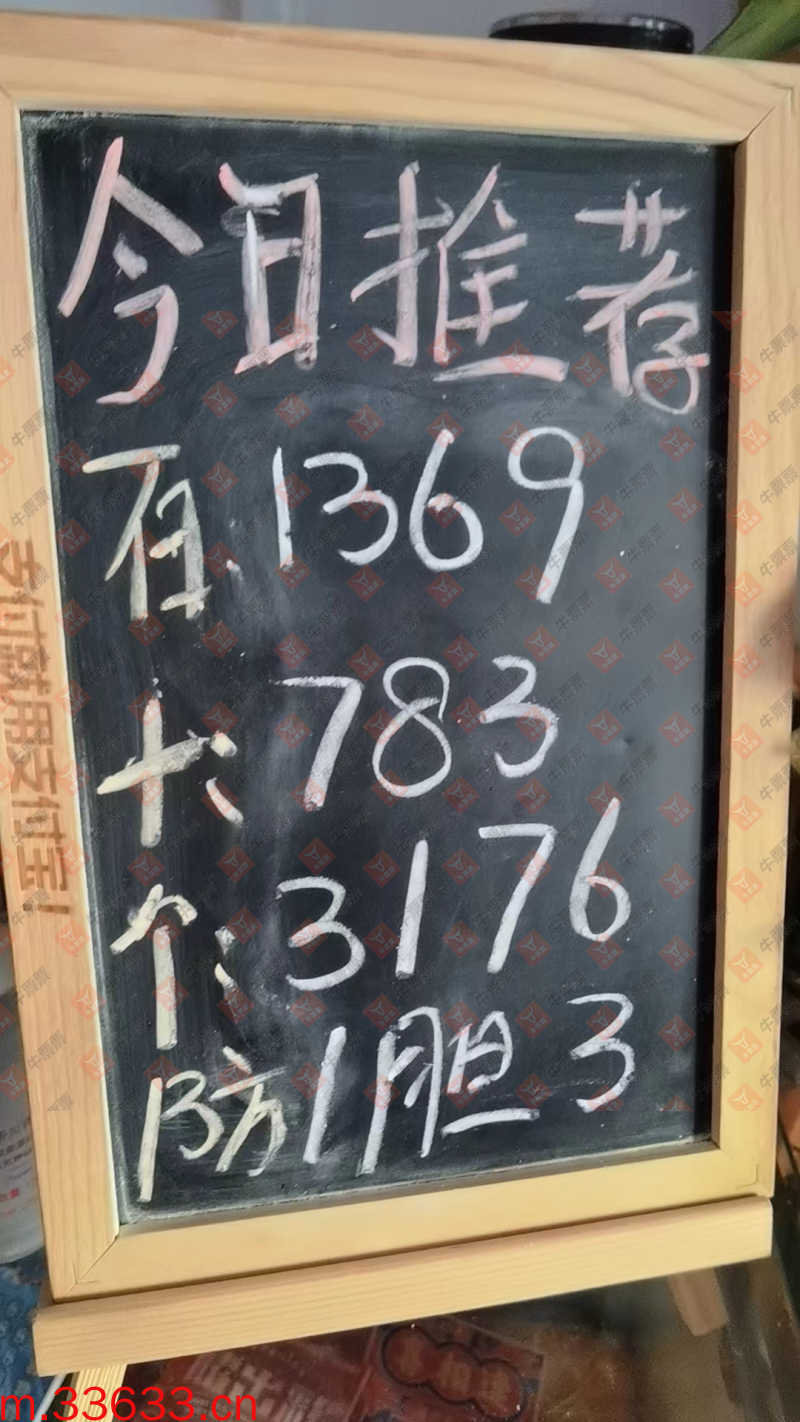 今日推荐
百:1369
十:783
个:3176
防1胆3
支付就用支付宝!
牛票票
m.33633.cn